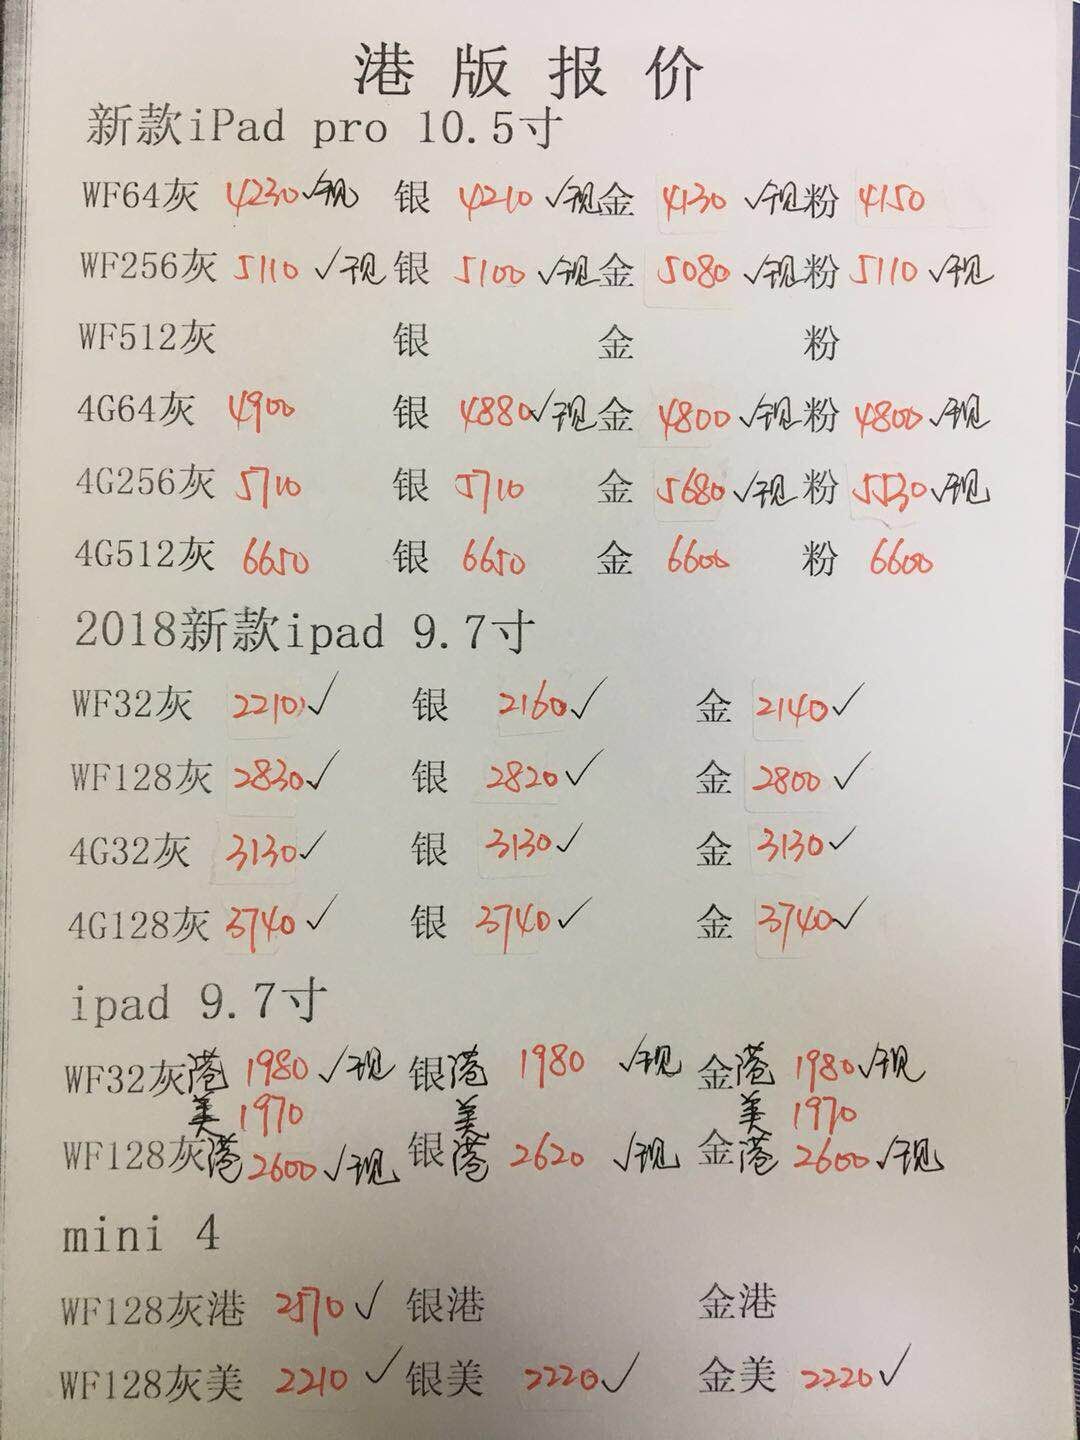 港版报价
新款iPad pro 10.5寸
WF64灰 4230 √现 银 4210 √现 金 4130 √现 粉 4150
WF256灰 5110 √现 银 5100 √现 金 5080 √现 粉 5110 √现
WF512灰 银 金 粉
4G64灰 4900 银 4880 √现 金 4800 √现 粉 4800 √现
4G256灰 5710 银 5710 金 5680 √现 粉 5530 √现
4G512灰 6650 银 6650 金 6600 粉 6600
2018新款ipad 9.7寸
WF32灰 2210 √ 银 2160 √ 金 2140 √
WF128灰 2830 √ 银 2820 √ 金 2800 √
4G32灰 3130 √ 银 3130 √ 金 3130 √
4G128灰 3740 √ 银 3740 √ 金 3740 √
ipad 9.7寸
WF32灰港 1980 √现 银港 1980 √现 金港 1980 √现
美 1970 美 美 1970
WF128灰港 2600 √现 银港 2620 √现 金港 2600 √现
mini 4
WF128灰港 2570 √ 银港 金港
WF128灰美 2210 √ 银美 2220 √ 金美 2220 √